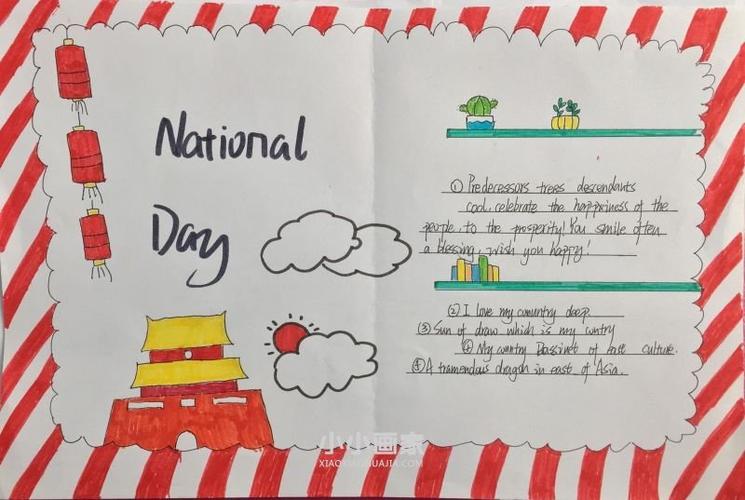 National
Day
① Predecessors trees descendants
cool, celebrate the happiness of the
people, to the prosperity! You smile often
a blessing, wish you happy!
② I love my country deep
③ Sun of draw which is my cuntry
④ My cuntry of east culture.
⑤ A tramendous dragon in east of Asia.
小小画家
XIAOXIAOHUAJIA.COM